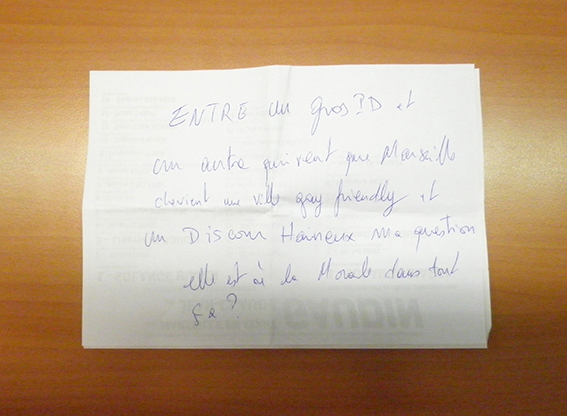 ENTRE un gros PD et
un autre qui veut que Marseille
devient une ville gay friendly et
un Discour Haineux ma question
elle est où la Morale dans tout
ça ?